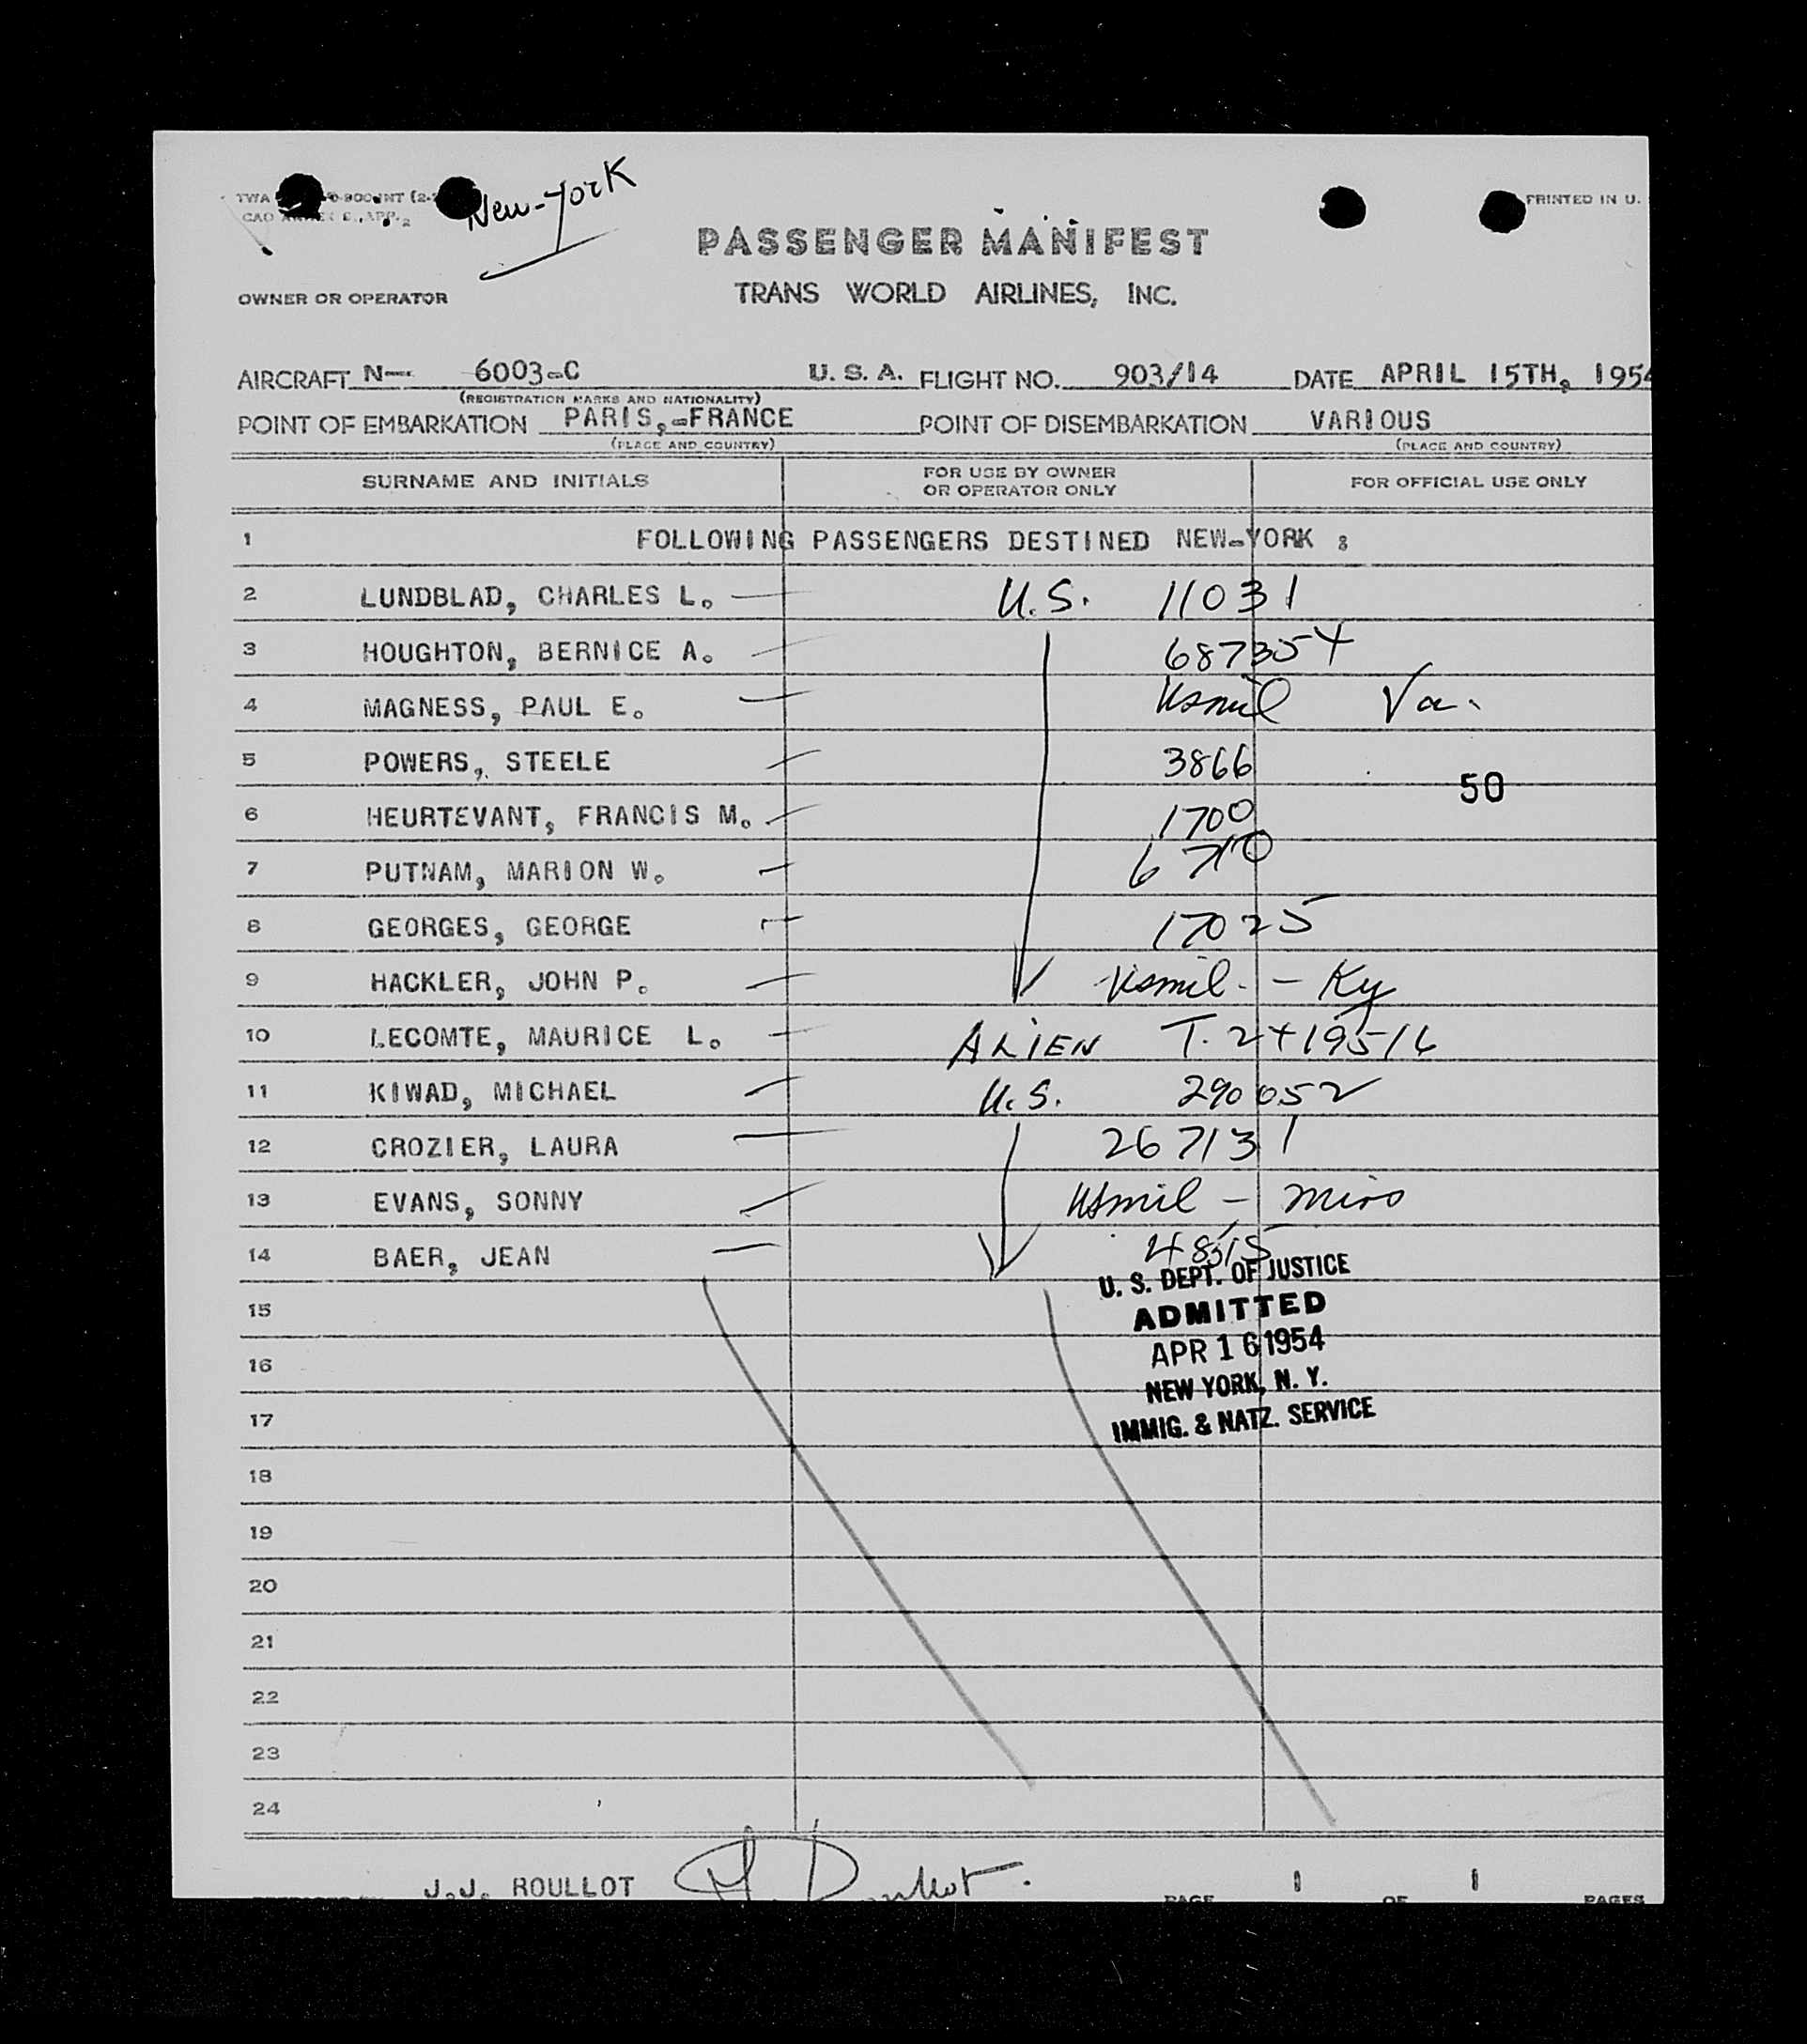 New-York
TWA
PRINTED IN U.
PASSENGER MANIFEST
OWNER OR OPERATOR TRANS WORLD AIRLINES, INC.
AIRCRAFT N— 6003-C U. S. A. FLIGHT NO. 903/14 DATE APRIL 15TH, 1954
(REGISTRATION MARKS AND NATIONALITY)
POINT OF EMBARKATION PARIS,-FRANCE POINT OF DISEMBARKATION VARIOUS
(PLACE AND COUNTRY) (PLACE AND COUNTRY)
SURNAME AND INITIALS FOR USE BY OWNER OR OPERATOR ONLY FOR OFFICIAL USE ONLY
1 FOLLOWING PASSENGERS DESTINED NEW-YORK :
2 LUNDBLAD, CHARLES L. U.S. 11031
3 HOUGHTON, BERNICE A. 687354
4 MAGNESS, PAUL E. Usmil Va.
5 POWERS, STEELE 3866
50
6 HEURTEVANT, FRANCIS M. 1700
7 PUTNAM, MARION W.
8 GEORGES, GEORGE 17025
9 HACKLER, JOHN P. Usmil. - Ky
10 LECOMTE, MAURICE L. ALIEN T. 2419516
11 KIWAD, MICHAEL U.S. 290052
12 CROZIER, LAURA 267131
13 EVANS, SONNY Usmil -
14 BAER, JEAN 4815
U. S. DEPT. OF JUSTICE
ADMITTED
15
APR 16 1954
16
NEW YORK, N. Y.
IMMIG. & NATZ. SERVICE
17
18
19
20
21
22
23
24
J.J. ROULLOT PAGE 1 OF 1 PAGES